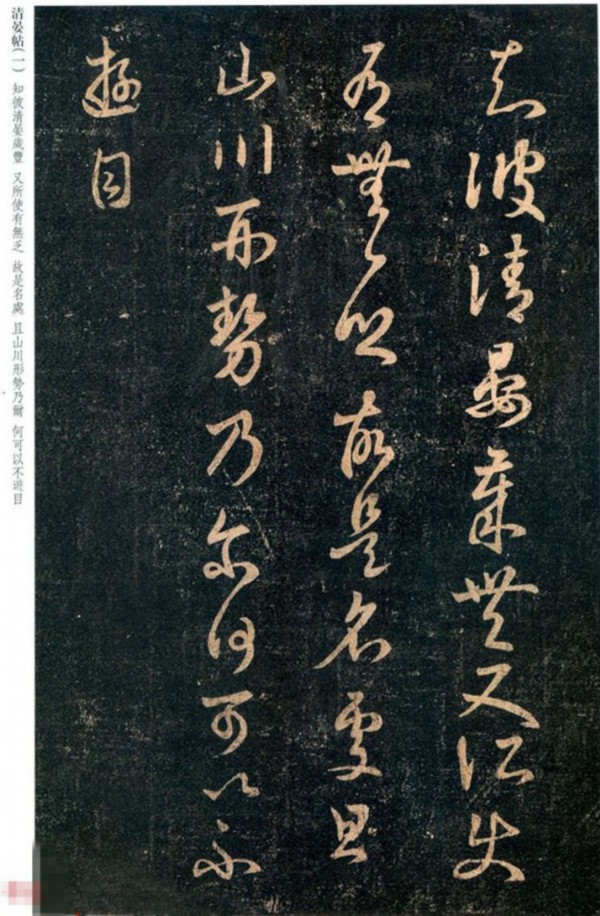 知彼清晏歲豐又所使
有無一鄉故是名處且
山川形勢乃爾何可以不
遊目
清晏帖(一) 知彼清晏歲豐 又所使有無乏 故是名處 且山川形勢乃爾 何可以不遊目